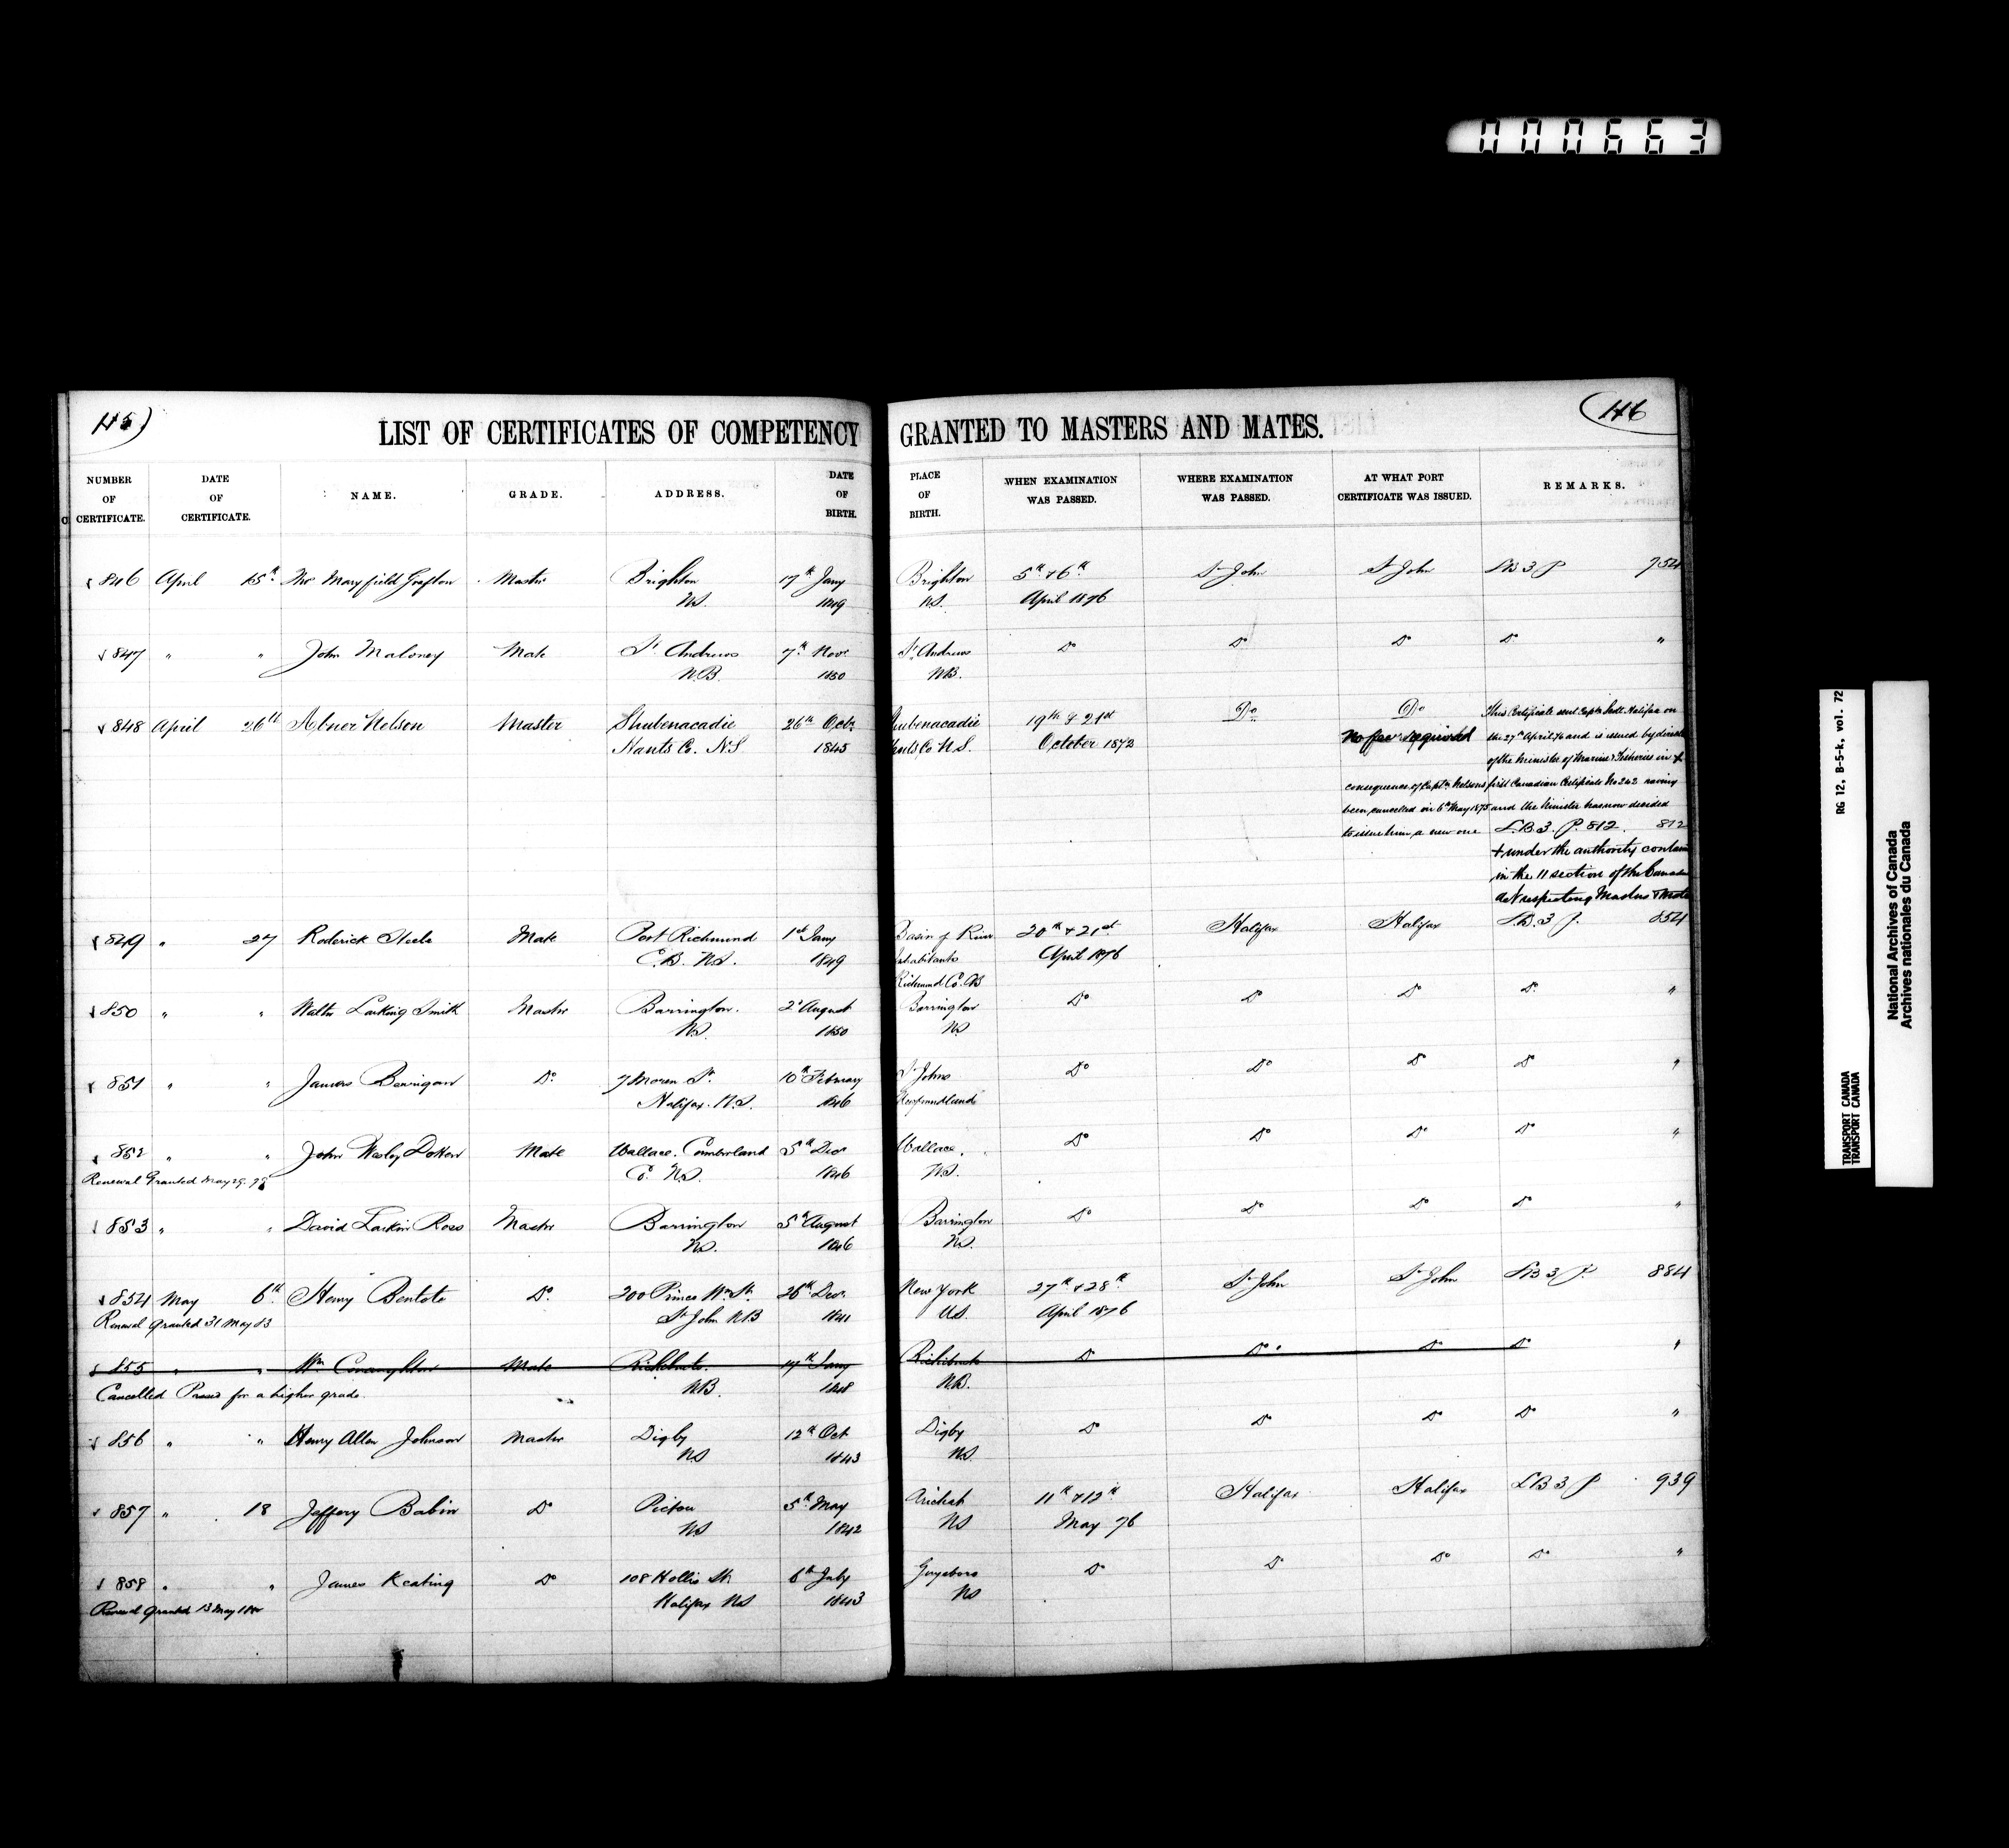 000663
115)
LIST OF CERTIFICATES OF COMPETENCY
GRANTED TO MASTERS AND MATES.
(116
NUMBER OF CERTIFICATE.
DATE OF CERTIFICATE.
NAME.
GRADE.
ADDRESS.
DATE OF BIRTH.
PLACE OF BIRTH.
WHEN EXAMINATION WAS PASSED.
WHERE EXAMINATION WAS PASSED.
AT WHAT PORT CERTIFICATE WAS ISSUED.
REMARKS.
846 April 15th Mayfield Grafton Master Brighton 17th Jany Brighton 5th & 6th St John St John LB 3 P 754
N.S. 1849 N.S. April 1876
847 " " John Maloney Mate St Andrews 7th Novr St Andrews Do Do Do Do "
N.B. 1850 NB.
848 April 26th Abner Nelson Master Shubenacadie 26th Octr Shubenacadie 19th & 21st Do Do This Certificate sent Capt Halifax on
Hants Co. N.S 1845 Hants Co N.S. October 1872 No fee required the 27th April 76 and is issued by
of the Minister of Marine & Fisheries in +
consequence of Capt. Nelsons first Canadian Certificate No 242 having
been cancelled on 6th May 1875 and the Minister has now decided
to issue him a new one L.B.3. P. 812. 812
+ under the authority
in the 11 section of the
act respecting Masters & Mates
849 " 27 Roderick Steele Mate Port Richmond 1st Jany Basin of River 20th & 21st Halifax Halifax L.B.3 P. 854
C.B. N.S. 1849 Inhabitants April 1876
Richmond Co. CB
850 " " Walter Larking Smith Master Barrington. 2d August Barrington Do Do Do Do "
N.S. 1850 NS
851 " " James Do 7 Moren St. 10th February St Johns Do Do Do Do "
Halifax. N.S. 1846 Newfoundland
852 " " John Wesley Mate Wallace. Cumberland 5th Decr Wallace. Do Do Do Do "
Renewal Granted May 29. Co. N.S. 1846 N.S.
853 " " David Larkin Ross Master Barrington 5th August Barrington Do Do Do Do "
NS. 1846 N.S.
854 May 6th Henry Do 200 Prince Wm St. 26th Decr. New York 27th & 28th St John St John LB 3 P. 884
Renewal granted 31 May 83 St John NB 1841 U.S. April 1876
855 " " Wm Mate Richibucto. 17th Jany Richibucto Do Do Do Do "
Cancelled Passed for a higher grade. NB. 1848 N.B.
856 " " Henry Allen Johnson Master Digby 12th Oct Digby Do Do Do Do "
NS 1843 N.S.
857 " 18 Jeffery Babin Do Pictou 5th May Arichat 11th & 12th Halifax Halifax LB 3 P 939
NS 1842 NS May 76
858 " " James Keating Do 108 Hollis St 6th July Guysboro Do Do Do Do "
Renewal granted 13 May Halifax NS 1843 NS
RG 12, B-5-k, vol. 72
TRANSPORT CANADA
TRANSPORT CANADA
National Archives of Canada
Archives nationales du Canada